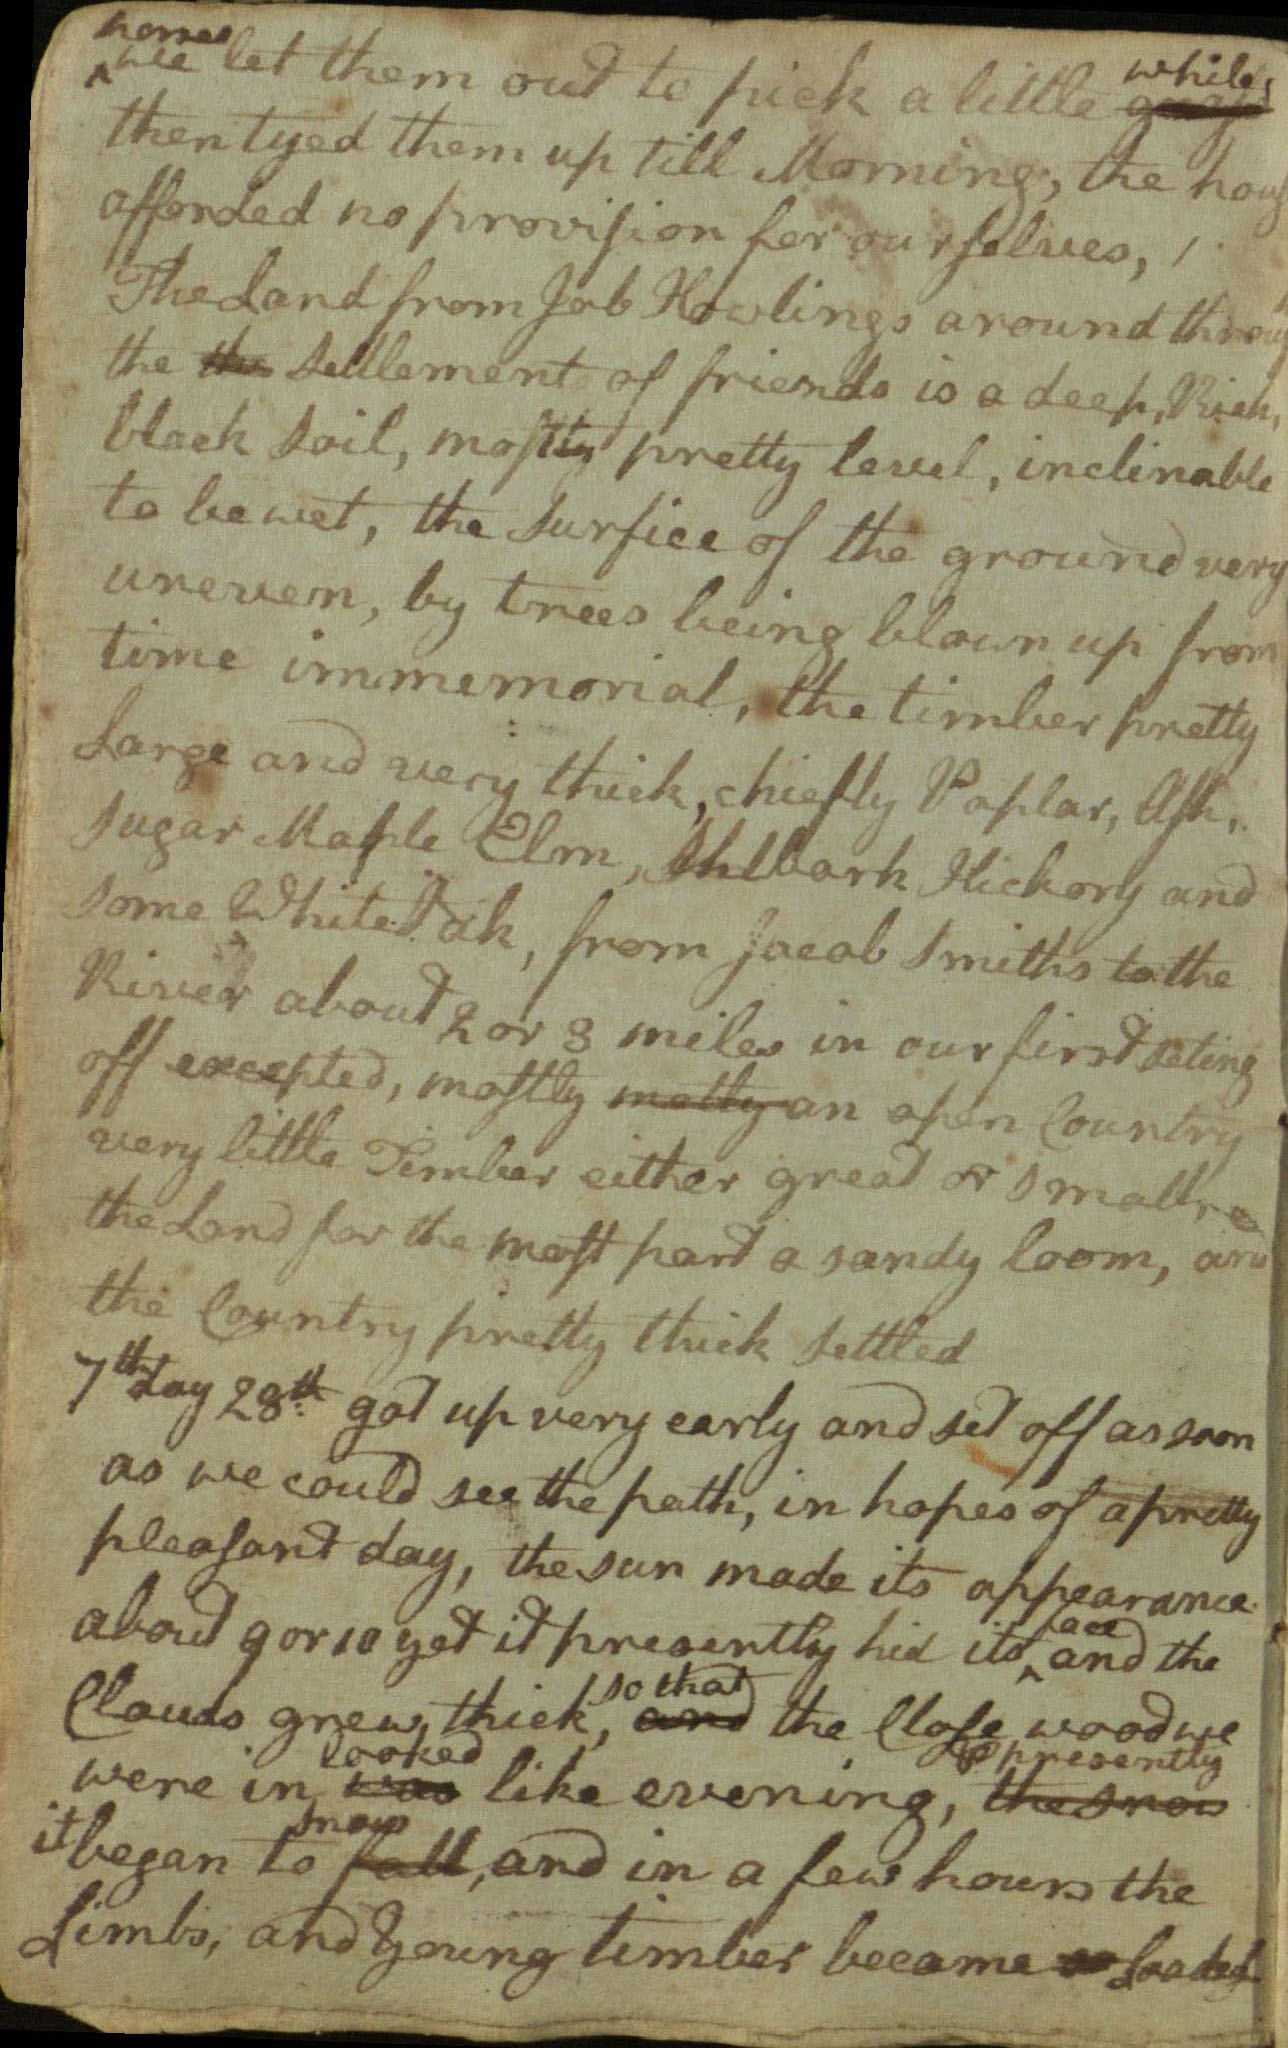 horses
^ wee let them out to pick a little while
then tyed them up till Morning, the hous
afforded no provision for ourselves,
The Land from Job Howlings around throug
the the settlement of friends is a deep, Rich,
black soil, mostly pretty level, inclinable
to be wet, the surfice of the ground very
uneven, by trees being blown up from
time immemorial, the timber pretty
Large and very thick, chiefly Poplar, Ash,
sugar Maple Elm, Shlbark Hickory and
some White Oak, from Jacob Smiths to the
River about 2 or 3 miles in our first seting
off excepted, mostly motly an open Country
very little Timber either great or small,
the Land for the most part a sandy loom, and
the Country pretty thick settled
7th day 28th got up very early and set off as soon
as we could see the path, in hopes of a pretty
pleasant day, the sun made its appearance
about 9 or 10 yet it presently hid its ^ face and the
Clouds grew thick, and so that the Close wood we
were in was looked like evening, the snow & presently
it began to fall snow, and in a few hours the
Limbs, and Young timber became so Loaded